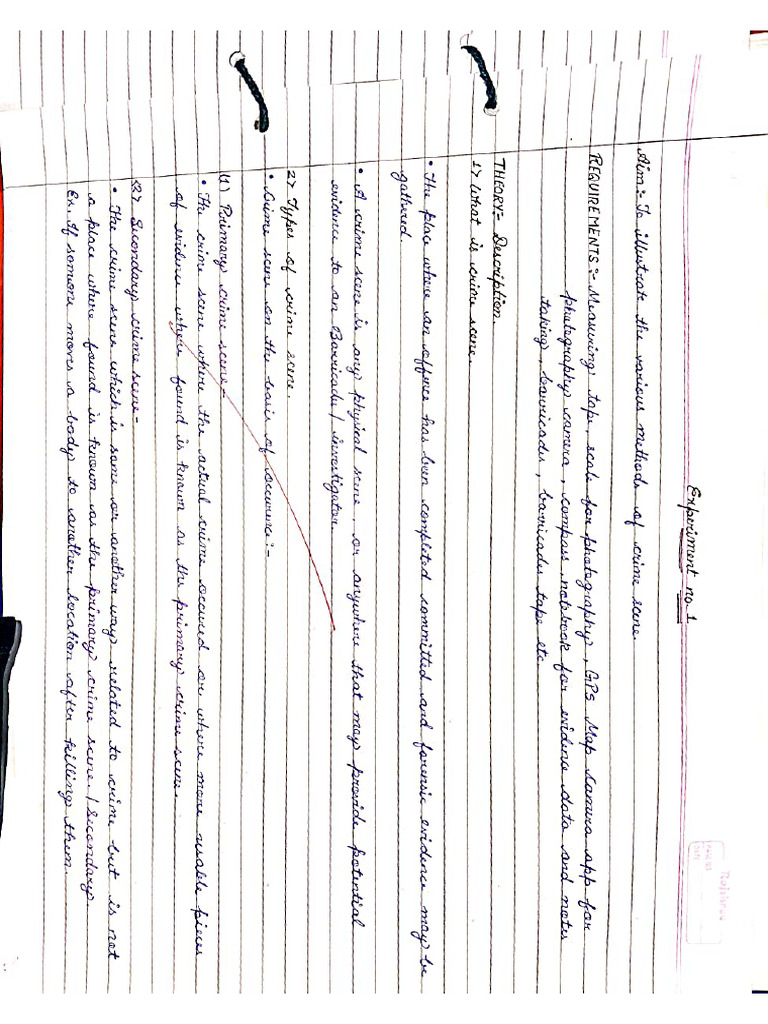 Experiment no 1
Aim:- To illustrate the various methods of crime scene.
REQUIREMENTS:- Measuring tape, scale for photography, GPS Map camera app for
photography camera, compass, notebook for evidence data and notes
taking barricades, barricades tape etc
THEORY:- Description.
1> What is crime scene.
• The place where an offence has been completed committed and forensic evidence may be
gathered.
• A crime scene is any physical scene, or anywhere that may provide potential
evidence to an Barricade/ investigator
2> Types of crime scene.
• Crime scene on the basis of occurence:-
(1) Primary crime scene-
• The crime scene where the actual crime occured or where more usable pieces
of evidence where found is known as the primary crime scene.
(2) Secondary crime scene-
• The crime scene which is same or another way related to crime but is not
a place where found is known as the primary crime scene./Secondary
Ex. If someone moves a body to another location after killing them.